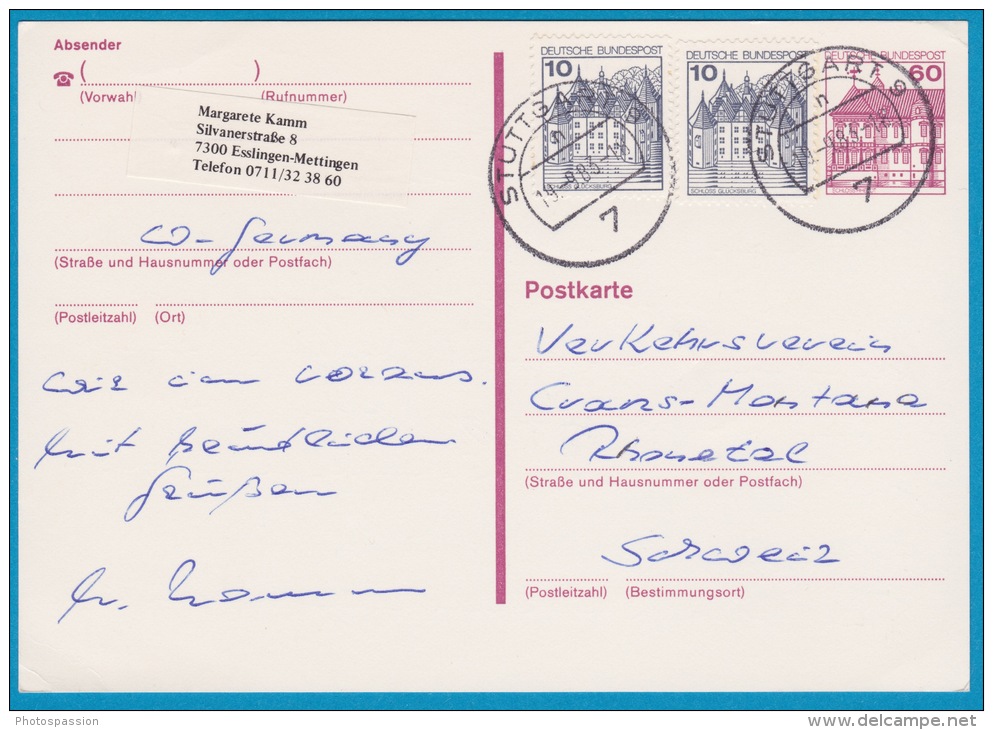 Absender
( )
(Vorwahl (Rufnummer)
Margarete Kamm
Silvanerstraße 8
7300 Esslingen-Mettingen
Telefon 0711/32 38 60
W-Germany
(Straße und Hausnummer oder Postfach)
(Postleitzahl) (Ort)
wir im voraus.
Mit freundlichen
Grüßen
M. Kamm
DEUTSCHE BUNDESPOST
10
SCHLOSS GLÜCKSBURG
DEUTSCHE BUNDESPOST
10
SCHLOSS GLÜCKSBURG
DEUTSCHE BUNDESPOST
60
STUTTGART 9
n
19.-9.83
7
STUTTGART 9
n
7
Postkarte
Verkehrsverein
Crans-Montana
Rhonetal
(Straße und Hausnummer oder Postfach)
Schweiz
(Postleitzahl) (Bestimmungsort)
Photospassion
delcampe.net